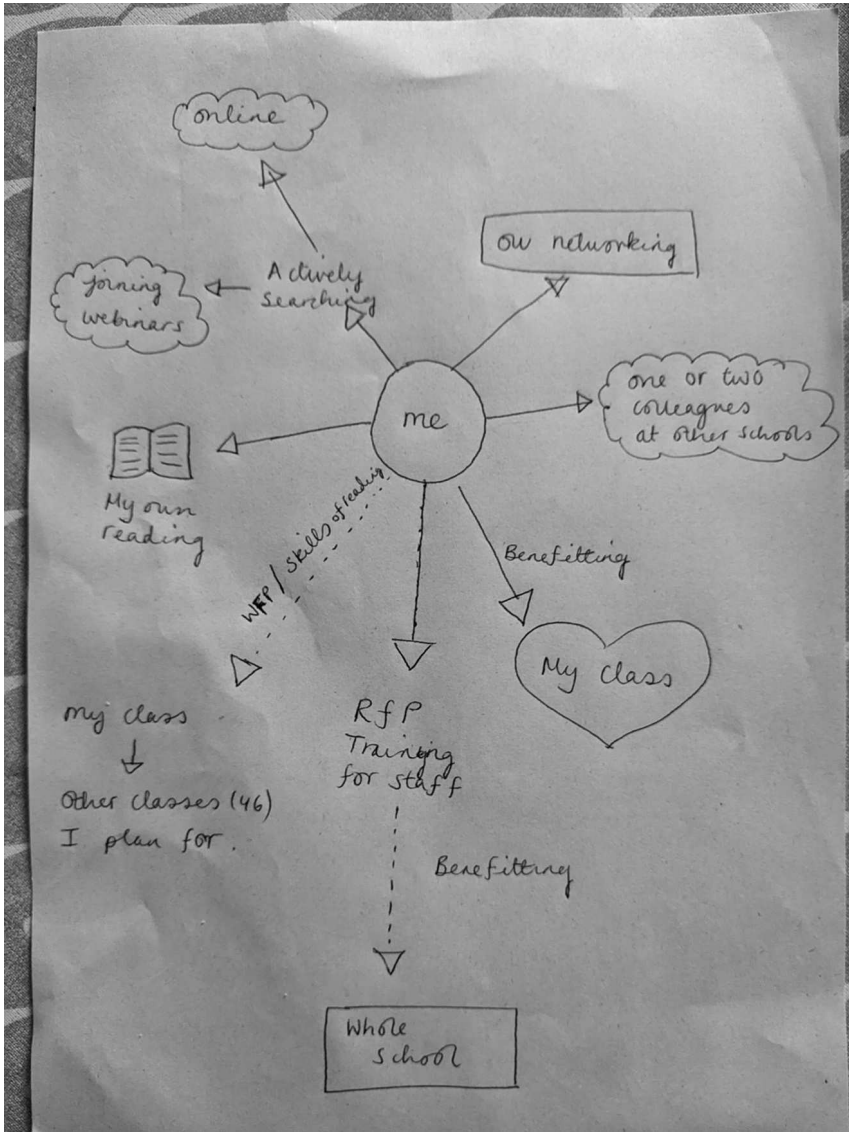 online
OU networking
Actively
searching
joining
webinars
one or two
colleagues
at other schools
me
My own
reading
WFP / Skills of reading
Benefitting
My class
my class
Other classes (46)
I plan for.
RfP
Training
for staff
Benefitting
Whole
school